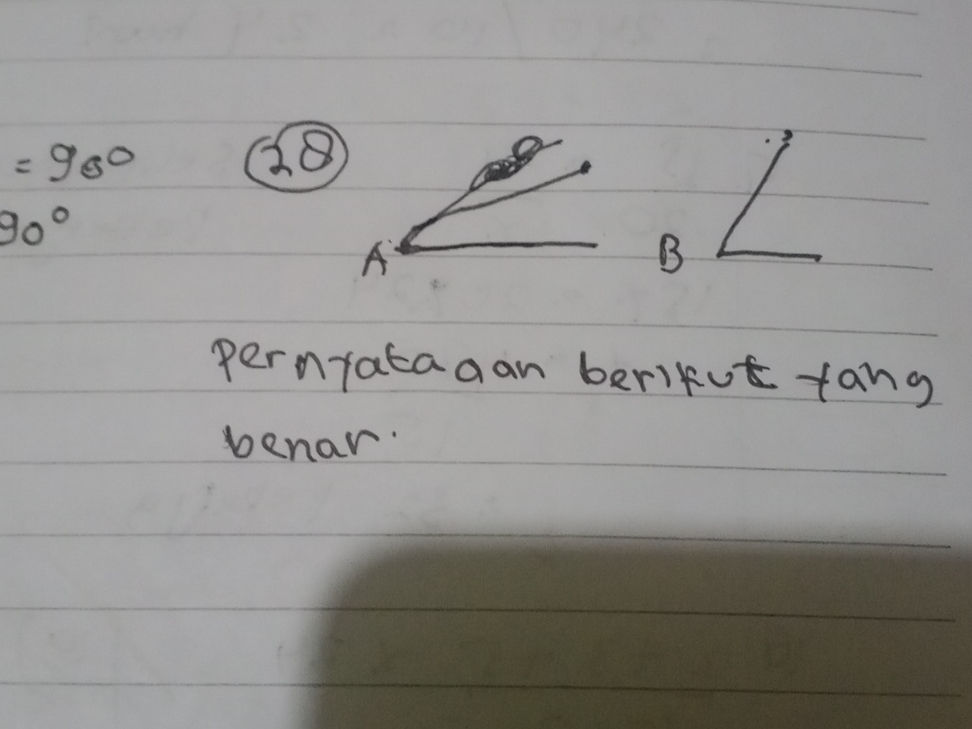 = 90°
90°
28
A
B
Pernyataaan berikut yang
benar.